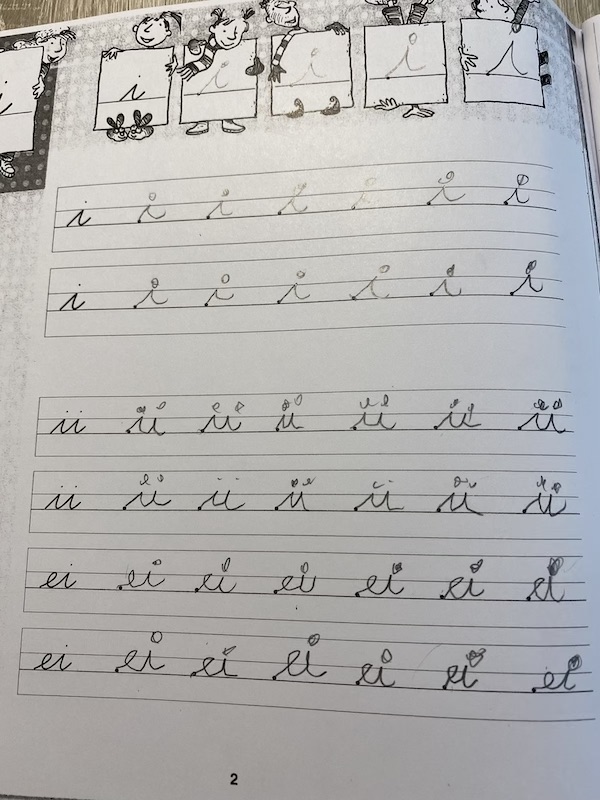 i i i i i i
i i i i i i i
i i i i i i i
ii ii ii ii ii ii ii
ii ii ii ii ii ii ii
ei ei ei ei ei ei ei
ei ei ei ei ei ei ei
2